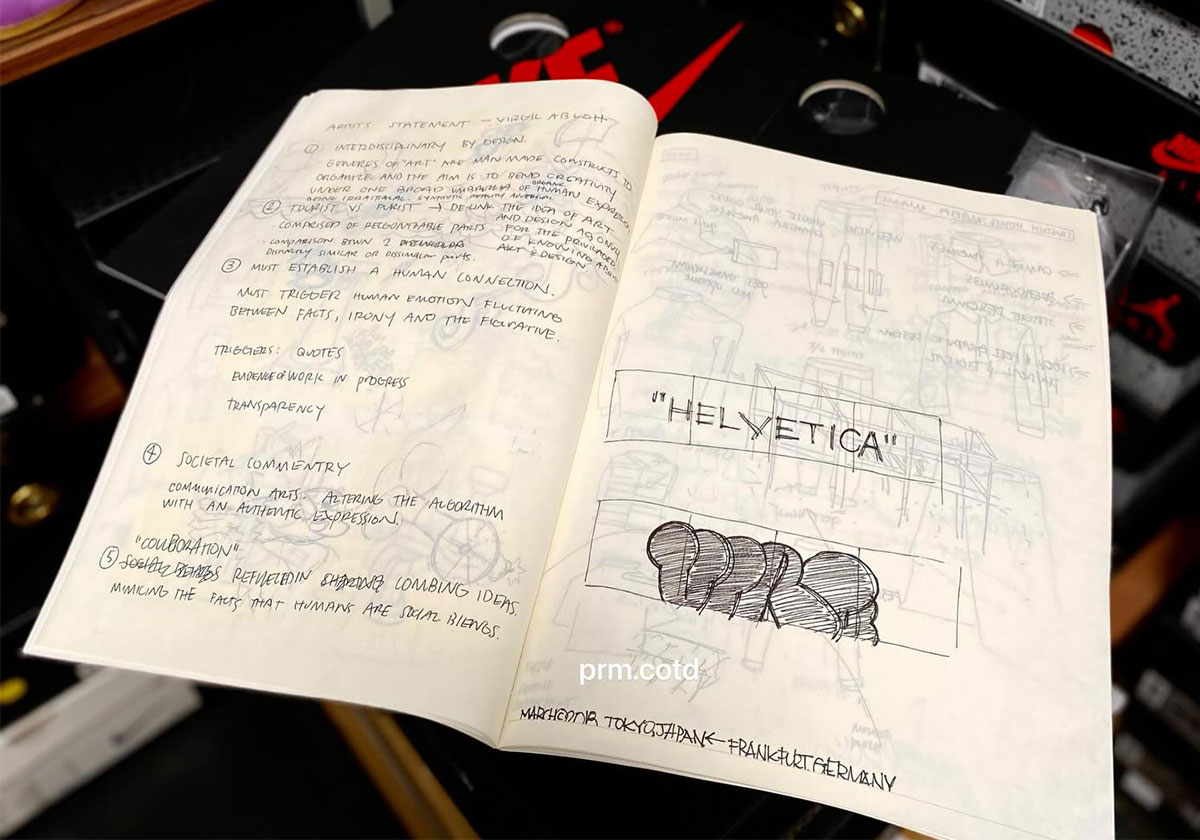 ARTISTS STATEMENT – VIRGIL ABLOH
① INTERDISCIPLINARY BY DESIGN.
GENERES OF "ART" ARE MAN MADE CONSTRUCTS TO
ORGANIZE. AND THE AIM IS TO BEND CREATIVITY
UNDER ONE BROAD UMBRELLA OF ORGANIC HUMAN EXPRESS
BEING IRRATIONAL
② TOURIST VS. PURIST → DE-LINK THE IDEA OF ART
AND DESIGN AS ONLY
· COMPRISED OF RECGONIZABLE PARTS FOR THE PRIVILAGED
· COMPARISON BTWN 2 OF KNOWING ABOUT
DISTINCTLY SIMILAR OR DISSIMILAR parts. ART & DESIGN
③ MUST ESTABLISH A HUMAN CONNECTION.
MUST TRIGGER HUMAN EMOTION FLUCUATING
BETWEEN FACTS, IRONY AND THE FIGURATIVE.
TRIGGERS: QUOTES
EVIDENCE OF WORK IN PROGRESS
TRANSPARENCY
④ SOCIETAL COMMENTRY
COMMUNICATION ARTS. ALTERING THE ALGORITHM
WITH AN AUTHENTIC EXPRESSION.
"COLLBORATION"
⑤ COMBING IDEAS.
MIMICING THE FACTS THAT HUMANS ARE SOCIAL BIENGS.
"HELVETICA"
prm.cotd
TOKYO, JAPAN ← FRANKFURT. GERMANY